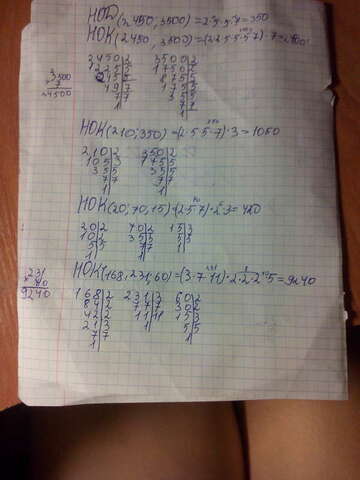 НОД(2450,3500)=2·5·5·7=350
НОК(2450,3500)=(2·2·5·5·5·7)·7=24500
2450|2 3500|2
1225|5 1750|2
245|5 875|5
49|7 175|5
7|7 35|5
1 7|7
1
3500
7
24500
НОК(210;350)=(2·5·5·7)·3=1050
210|2 350|2
105|3 175|5
35|5 35|5
7|7 7|7
1 1
НОК(20,70,15)=(2·5·7)·2·3=420
20|2 70|2 15|3
10|2 35|5 5|5
5|5 7|7 1
1 1
НОК(168,231,60)=(3·7·11)·2·2·2·5=9240
231
40
9240
168|2 231|3 60|2
84|2 77|7 30|2
42|2 11|11 15|3
21|3 1 5|5
7|7 1
1